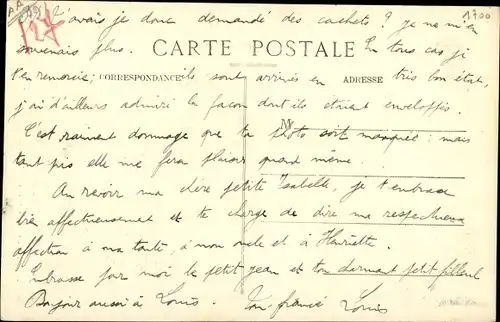 t'avais je donc demandé des cachets ? je ne m'en
souvenais plus. En tous cas je
CARTE POSTALE
t'en remercie; ils sont arrivés en très bon état,
CORRESPONDANCE
ADRESSE
j'ai d'ailleurs admiré la façon dont ils étaient enveloppés.
M
C'est vraiment dommage que ta photo soit manquée : mais
tant pis elle me fera plaisir quand même.
Au revoir ma chère petite Isabelle, je t'embrasse
bien affectueusement et te charge de dire ma respectueuse
affection à ma tante, à mon oncle et à Henriette.
Embrasse pour moi le petit Jean et ton charmant petit filleul
Bonjour aussi à Louis. Ton fiancé Louis
1700